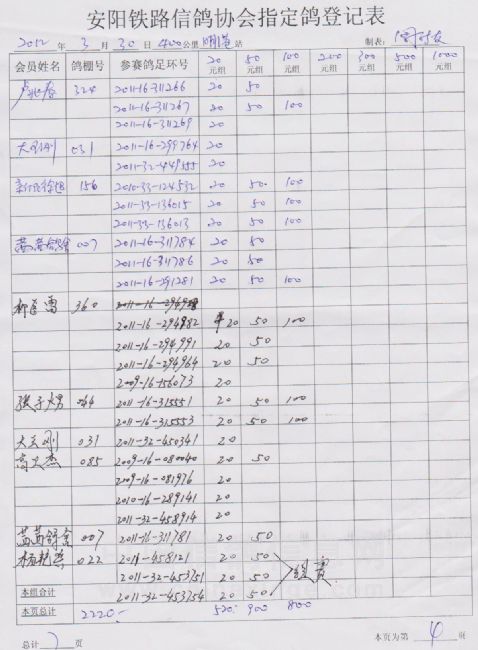 安阳铁路信鸽协会指定鸽登记表
2012 年 3 月 30 日 400公里 站 制表:
会员姓名 鸽棚号 参赛鸽足环号 20元组 50元组 100元组 200元组 300元组 500元组 1000元组
324 2011-16-311266 20 50
2011-16-311267 20 50 100
2011-16-311269 20
031 2011-16-299764 20
2011-32-449555 20
156 2010-33-124532 20 50 100
2011-33-136015 20 50 100
2011-33-136013 20 50 100
007 2011-16-311784 20 50
2011-16-311786 20 50
2011-16-291281 20 50 100
360
2011-16-294982 20 50 100
2011-16-294991 20 50
2011-16-294964 20 50
2009-16-156073 20
张子男 044 2011-16-315551 20 50 100
2011-16-315553 20 50 100
031 2011-32-450341 20
高文杰 085 2009-16-080040 20 50
2009-16-081976 20
2010-16-289141 20
2011-32-458914 20
007 2011-16-311781 20 50
022 2011-458121 20 50
2011-32-453751 20 50
本组合计 2011-32-453754 20 50
本页总计 2220- 520 900 800
总计 页 本页为第 4 页